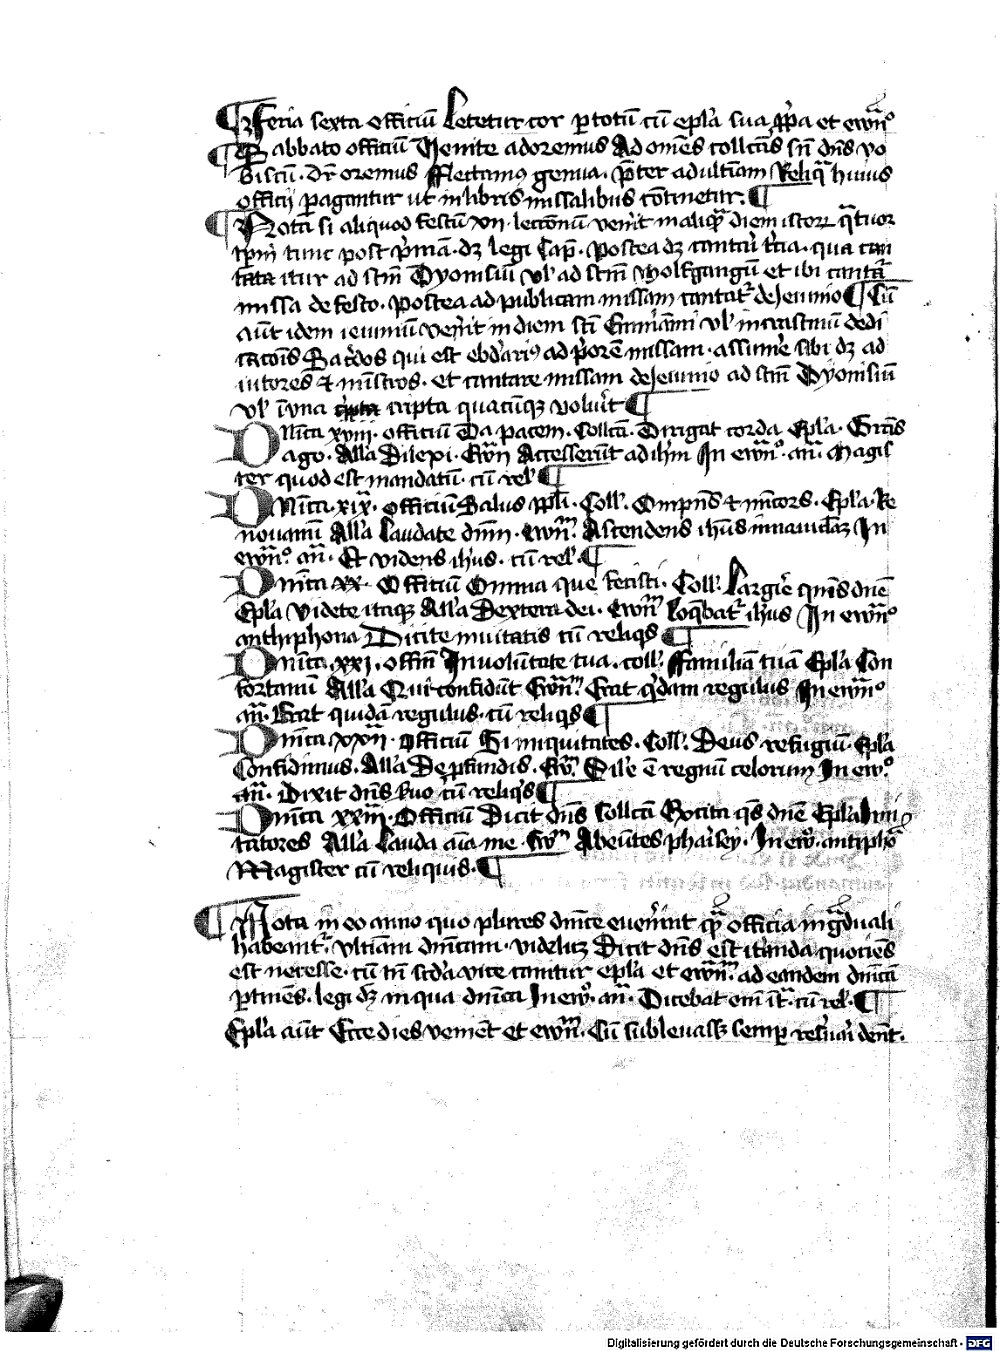 ¶ Feria sexta officiū Letetur cor p totū cū epl'a sua ꝓpa et ewͫ
¶ Sabbato officiū Venite adoremus Ad om̄es collctās sn̄ dn̄s vo
biscū. Dr̄ oremus Flectamꝰ genua. p̄ter ad ultimam Reliq̄ huius
officij pagantur ut in libris missalibus cōtinetur. ¶
¶ Nota si aliquod festū xij. lecconū ven'it in aliqͣm diem istoꝝ qͣtuor
tpm̄ tunc post p'mā. dꝫ legi Cap̄. postea dꝫ cantari t'cia. qua can
tata itur ad scm̄ Dyonisiū vl' ad scm̄ Wolfgangū et ibi cantaͬ
missa de festo. postea ad publicam missam cantatͬ de Jeiunio ¶ Cū
aūt idem ieiuniū ven'it in diem scī Emm'ammi vl' in crastinū dedi
cacōis Sac'dos qui est ebd'ariꝰ ad p'orē missam. assume' sibi dꝫ ad
iutores & mīstros. et cantare missam de Jeiunio ad scm̄ Dyonisiū
vl' ī vna cripta quacūqꝫ volu'it ¶
Dn̄ica xviij. officiū Da pacem. Collctā. Dirigat corda. Epl'a. Grās
ago. All'a Dilexi. Ewͫ Accesserūt ad ih'm In ewͫ°. an̄. Magis
ter quod est mandatū. cū rel' ¶
Dn̄ica. xix. officiū Salus ppl'i. Coll'. Omp̄ns & mīcors. Epl'a. Re
nouamī All'a Laudate dn̄m. ewͫ. Ascendens ih'us in nauiclā In
ewͫ°. an̄. Et videns ih'us. cū rel'. ¶
Dn̄ica xx. Officiū Omnia que fecisti. Coll'. Largire q̄ms dn̄e
Epl'a Videte itaqꝫ All'a Dextera dei. Ewͫ Loq̄batͬ ih'us In ewͫ°
anthiphona Dicite inuitatis cū reliqs ¶
Dn̄ica xxj. offm̄ In volūtate tua. coll'. Familiā tuā Epl'a Con
fortamī All'a Qui confidūt Ewͫ. Erat q'dam regulus In ewͫ°
an̄. Erat quidā regulus. cū reliqs ¶
Dn̄ica xxij. officiū Si iniquitates. Coll'. Deus refugiū. Epl'a
Confidimus. All'a De ꝓfundis. Ew̄. Sil'e ē regnū celorum In ew°.
an̄. Dixit dn̄s s'uo cū reliqs ¶
Dn̄ica xxiij. Officiū Dicit dn̄s Collctā Excita qs̄ dn̄e Epl'a Imi
tatores All'a Lauda aīa me. Ewͫ Abeūtes pharisey. In ew°. antiph°
Magister cū reliquis. ¶
¶ Nota in eo anno quo plures dn̄ice euen'int qͣm officia in gͣduali
habeantͬ. vltiam dn̄icam. videlicꝫ Dicit dn̄s est it'anda quociēs
est necesse. cū tn̄ scd'a vice canitur epl'a et ewͫ. ad eandem dn̄icā
ptinēs. legi dꝫ in qua dn̄ica In ew°. an̄. Dicebat em̄ it̄. cū rel'. ¶
Epl'a aūt Ecce dies veniēt et ewͫ. Cū subleuassꝫ semper res'uari debēt.
Digitalisierung gefördert durch die Deutsche Forschungsgemeinschaft - DFG